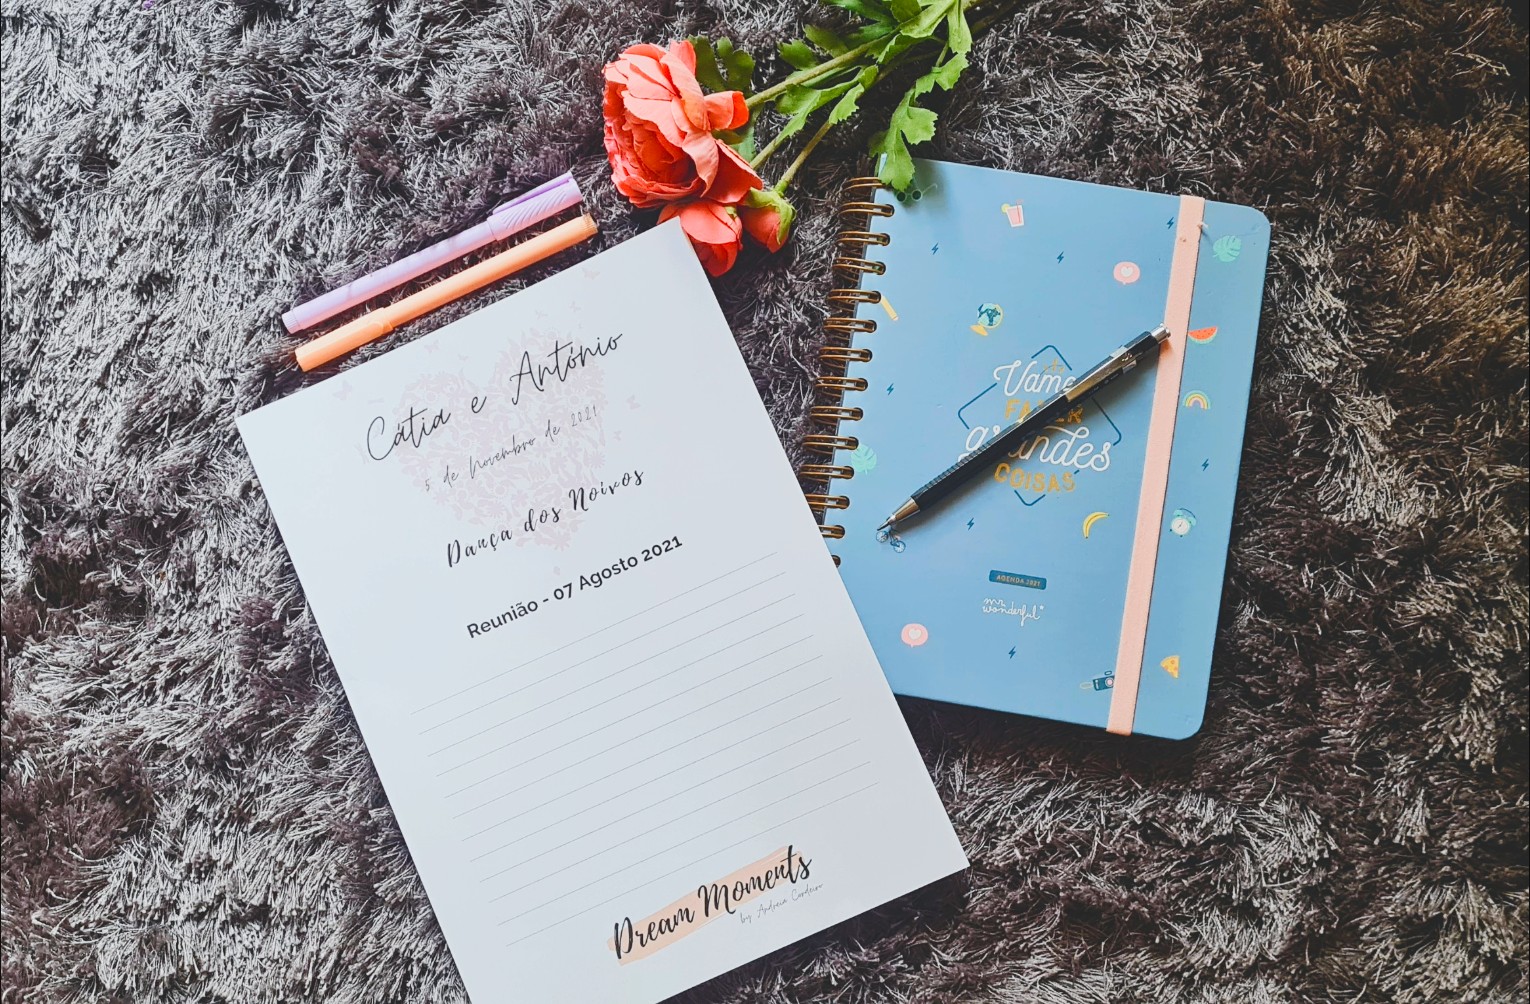 Cátia e António
5 de Novembro de 2021
Dança dos Noivos
Reunião - 07 Agosto 2021
Dream Moments
by Andreia Cordeiro
FAZER
grandes
COISAS
AGENDA 2021
mr.
wonderful*